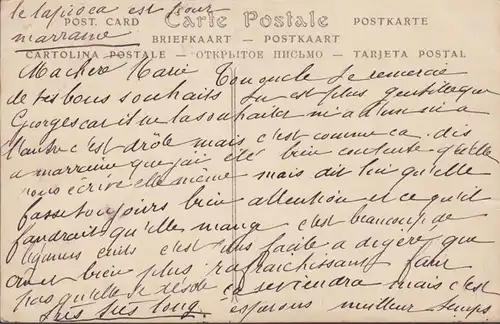 le tapioca est pour
marraine
POST CARD Carte Postale POSTKARTE
BRIEFKAART - POSTKAART
CARTOLINA POSTALE - ОТКРЫТОЕ ПИСЬМО - TARJETA POSTAL
Ma chère Marie Ton oncle te remercie
de tes bons souhaits tu est plus gentille que
Georges car il ne la souhaiter ni a l'un ni a
l'autre c'est drôle mais c'est comme ca. dis
a marraine que j'ai été bien contente qu'elle
nous écrive elle même mais dit lui qu'elle
fasse toujours bien attention et ce qu'il
faudrait qu'elle mange c'est beaucoup de
légumes cuits c'est plus facile a digéré que
et bien plus rafraichissant faut
pas qu'elle se désole ca se tendra mais c'est
très très long. espérons meilleur temps